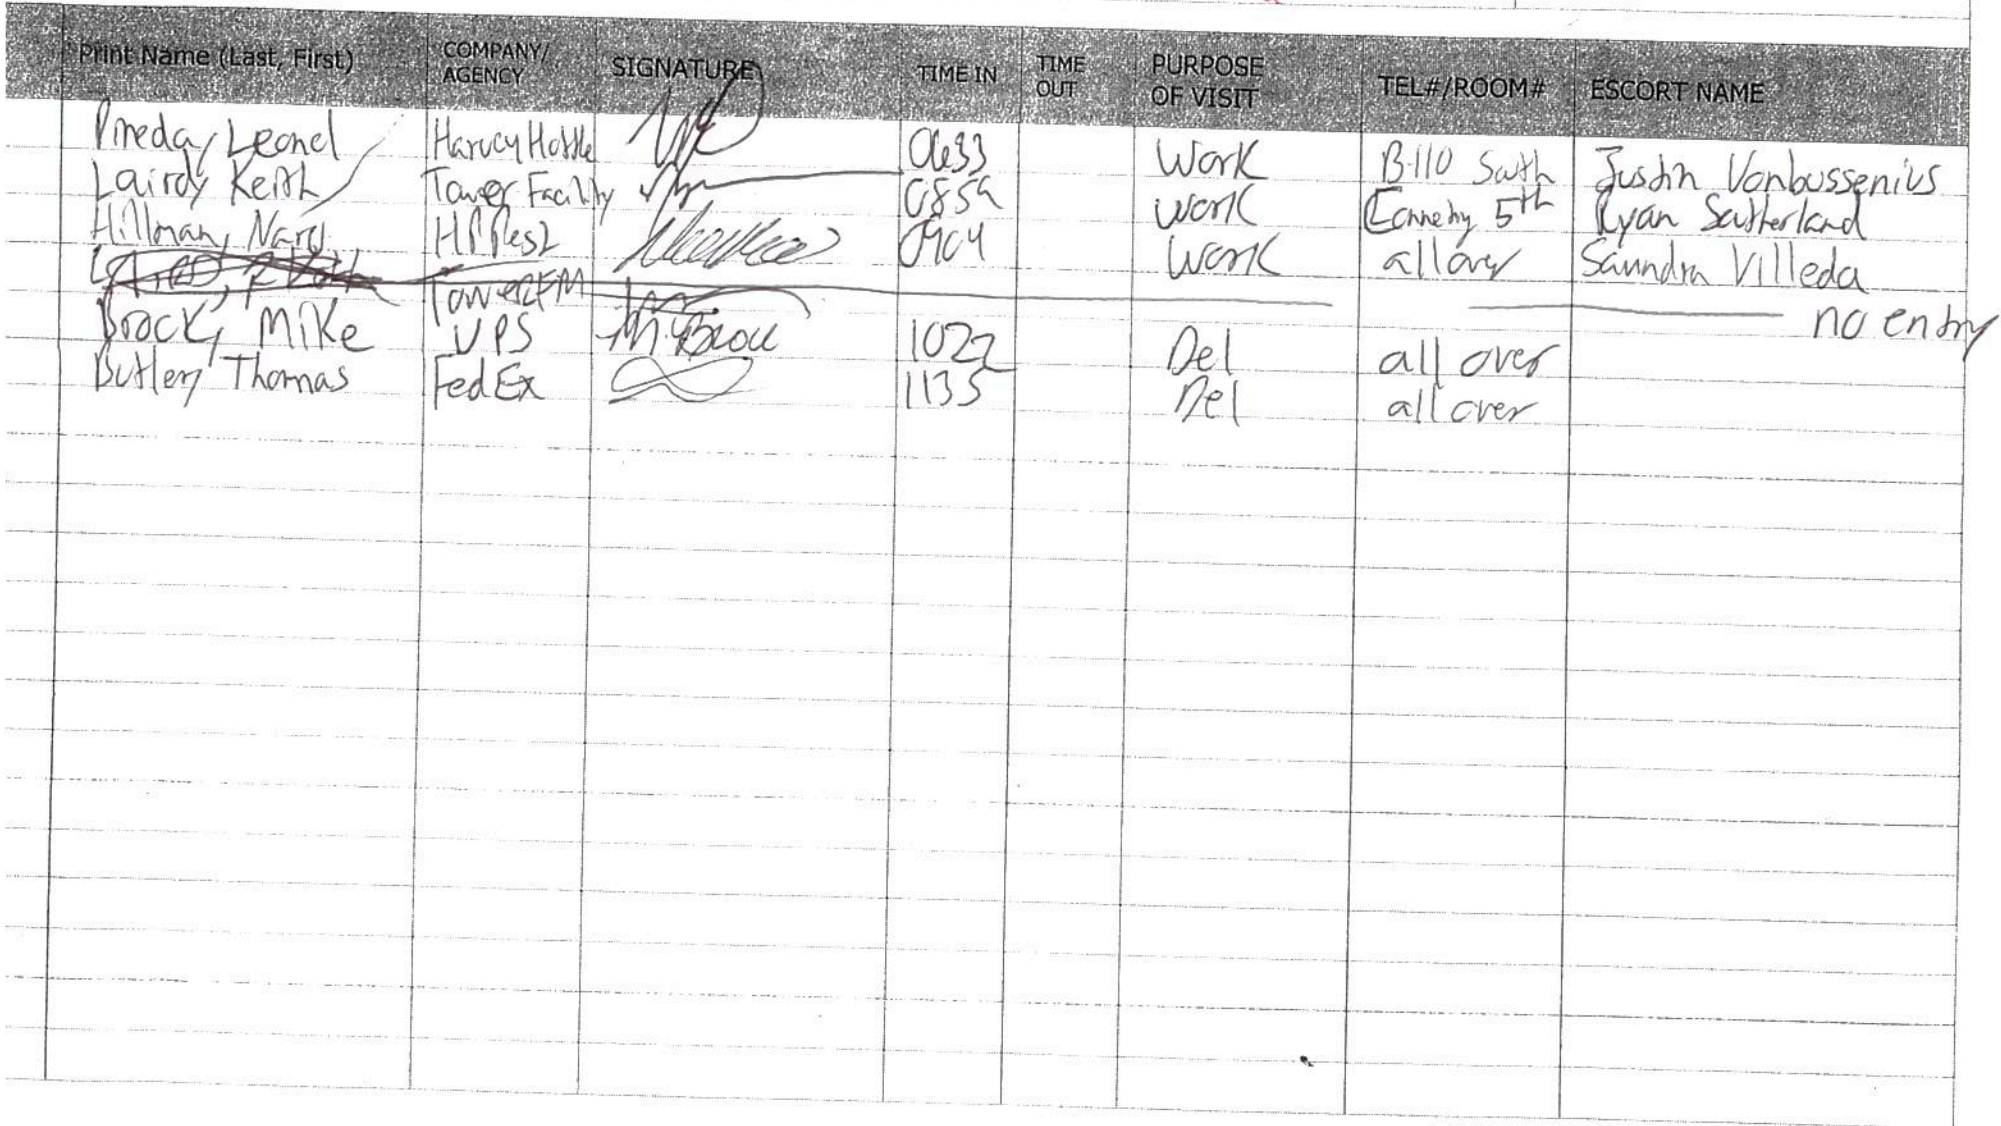 Print Name (Last, First) COMPANY/ AGENCY SIGNATURE TIME IN TIME OUT PURPOSE OF VISIT TEL#/ROOM# ESCORT NAME
Pineda, Leonel Harvey Hottle 0633 Work B-110 South Justin Vonbussenius
Laird, Keith Tower Facility 0859 work 5th Ryan Sutherland
Hillman, Nary 0904 Work all over Saundra Villeda
TowerFM no entry
Brock, Mike UPS M. Brock 1022 Del all over
Butler, Thomas FedEx 1135 Del all over